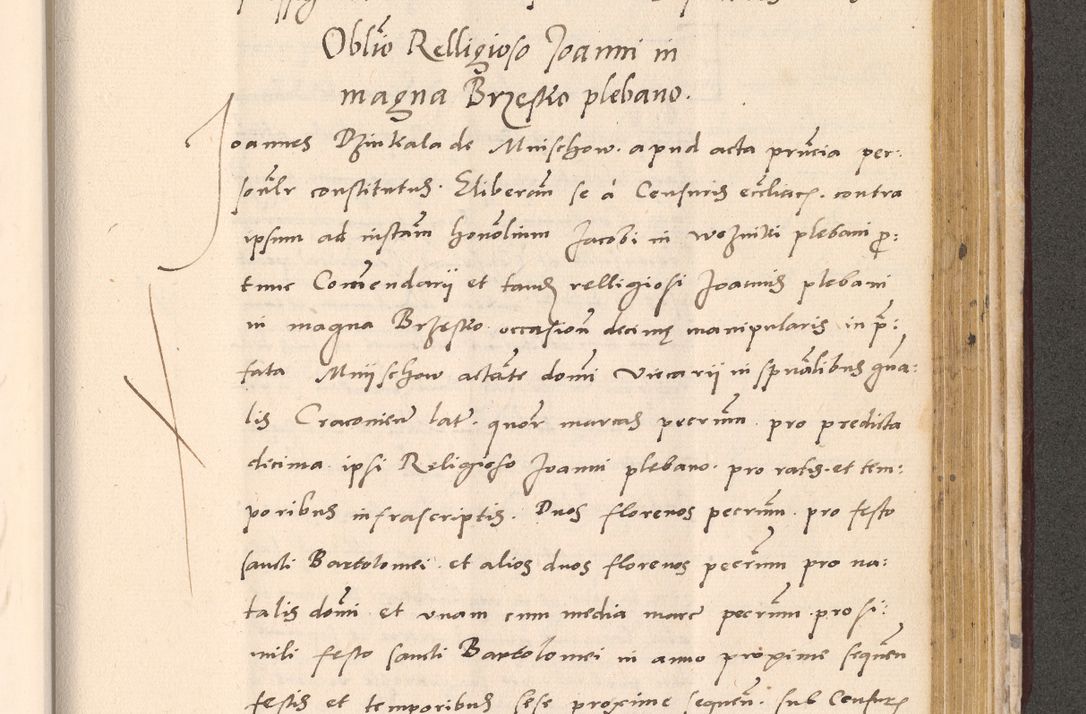 Oblĩo Relligioso Joanni in
magna Brzesko plebano.
Joannes Dzinkala de Mnischow. apud acta pñcia per:
soñlr constitutus. Eliberañ se á Censuris ecclias. contra
ipsum ad instañ honõlium Jacobi in Woznikj plebani p:
tunc Comẽndarij et tandẽ relligiosi Joannis plebani
in magna Brzesko. occasioñ decimę manipularis in p̃:
fata Mnijschow actẽnte domĩ Viccarij in spũalibus gña:
lis Cracovieñ lat. quõr marcas pecuniã. pro predicta
decima. ipsi Religioso Joanni plebano. pro ratis. et tem:
poribus infrascriptis. Duos florenos pecuniã. pro festo
sancti Bartolomei. et alios duos florenos pecuniã pro na:
talis domĩ. et unam cum media marc pecuniã. pro si:
mili festo sancti Bartolomei in anno proxime sequeñ
festis et temporibus sese proxime sequeñ. sub Censuris